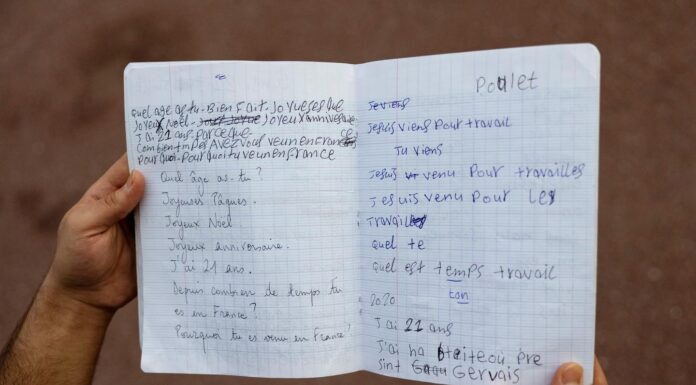 Quel age as tu - Bien Fait. Joyueses que
Joyeux Noel - Joyeux anniversaire
J'ai 21 ans. Parce que
Combien tmPes AVez Vous veun en France
Pour Quoi - Pour Quoi tu veun en FRANCE
Quel âge as-tu ?
Joyeuses Pâques.
Joyeux Noël
Joyeux anniversaire.
J'ai 21 ans.
Depuis combien de temps tu
es en France ?
Pourquoi tu es venu en France ?
Poulet
Je viens
Je suis viens Pour travail
Tu viens
Je suis venu Pour travailles
Je suis venu Pour les
Travail
Quel te
Quel est temps travail
ton
2020
J'ai 21 ans
J'ai ha
Sint Gervais